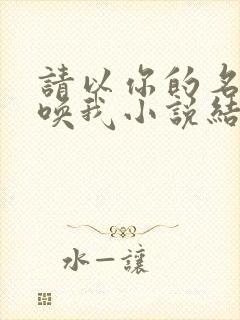 請以你的名
喚我小說結
水一讓